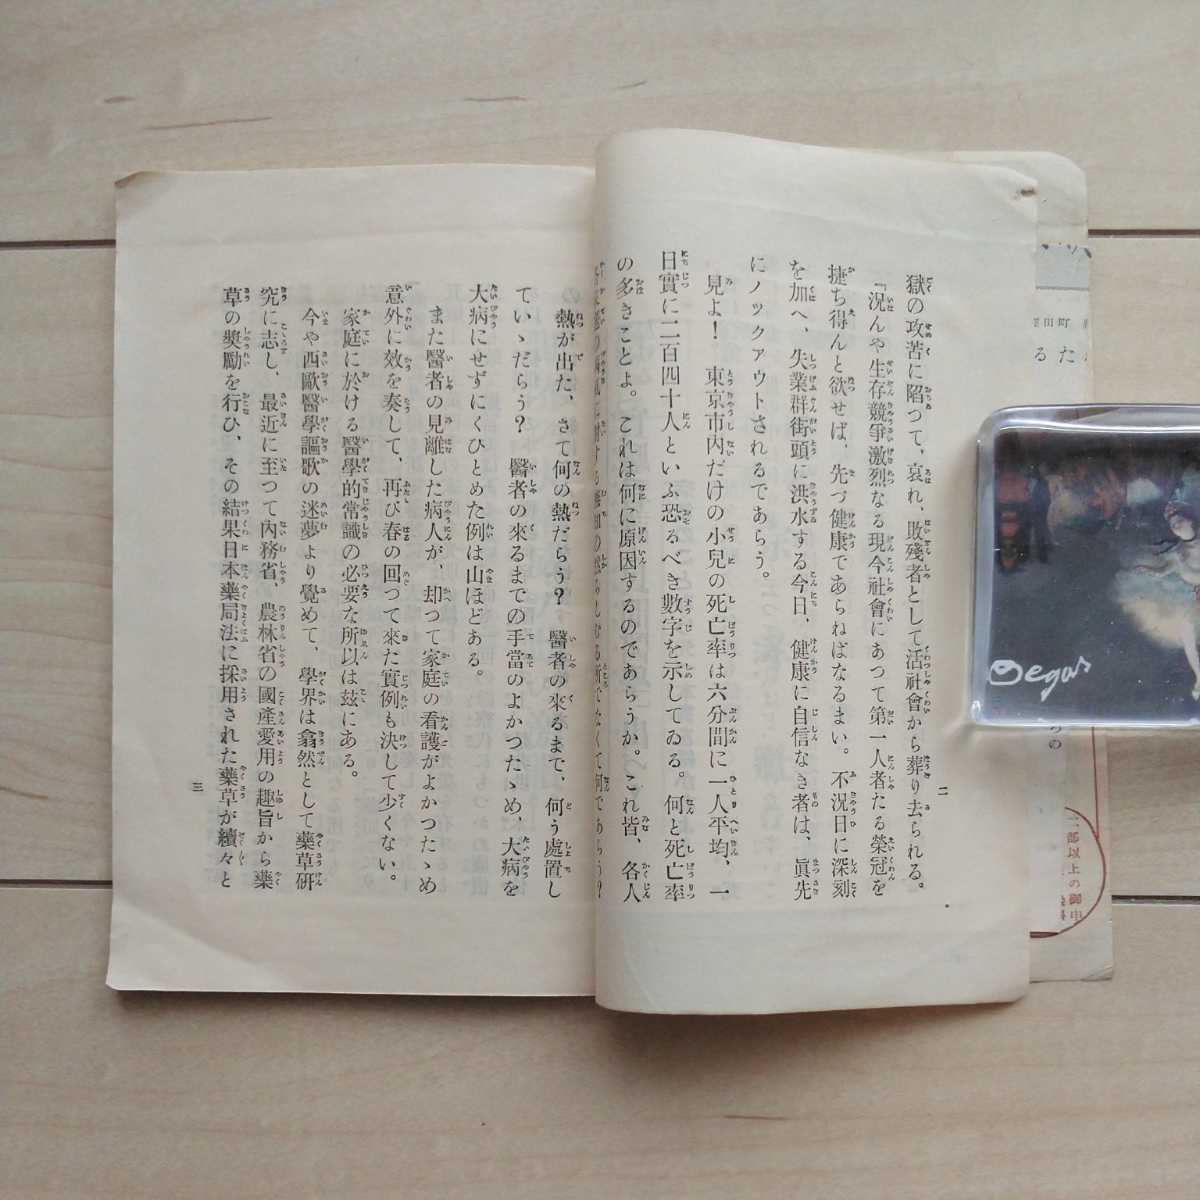 獄の攻苦に陷つて、哀れ、敗殘者として活社會から葬り去られる。
『況んや生存競爭激烈なる現今社會にあつて第一人者たる榮冠を
捷ち得んと欲せば、先づ健康であらねばなるまい。不況日に深刻
を加へ、失業群街頭に洪水する今日、健康に自信なき者は、眞先
にノックアウトされるであらう。
見よ！ 東京市內だけの小兒の死亡率は六分間に一人平均、一
日實に二百四十人といふ恐るべき數字を示してゐる。何と死亡率
の多きことよ。これは何に原因するのであらうか。これ皆、各人
二
熱が出た、さて何の熱だらう？ 醫者の來るまで、何う處置し
ていゝだらう？ 醫者の來るまでの手當のよかつたゝめ、大病を
大病にせずにくひとめた例は山ほどある。
また醫者の見離した病人が、却つて家庭の看護がよかつたゝめ
意外に效を奏して、再び春の回つて來た實例も決して少くない。
家庭に於ける醫學的常識の必要な所以は玆にある。
今や西歐醫學謳歌の迷夢より覺めて、學界は翕然として藥草硏
究に志し、最近に至つて內務省、農林省の國產愛用の趣旨から藥
草の奬勵を行ひ、その結果日本藥局法に採用された藥草が續々と
三
田町
るた
Degas
の
二部以上の御申